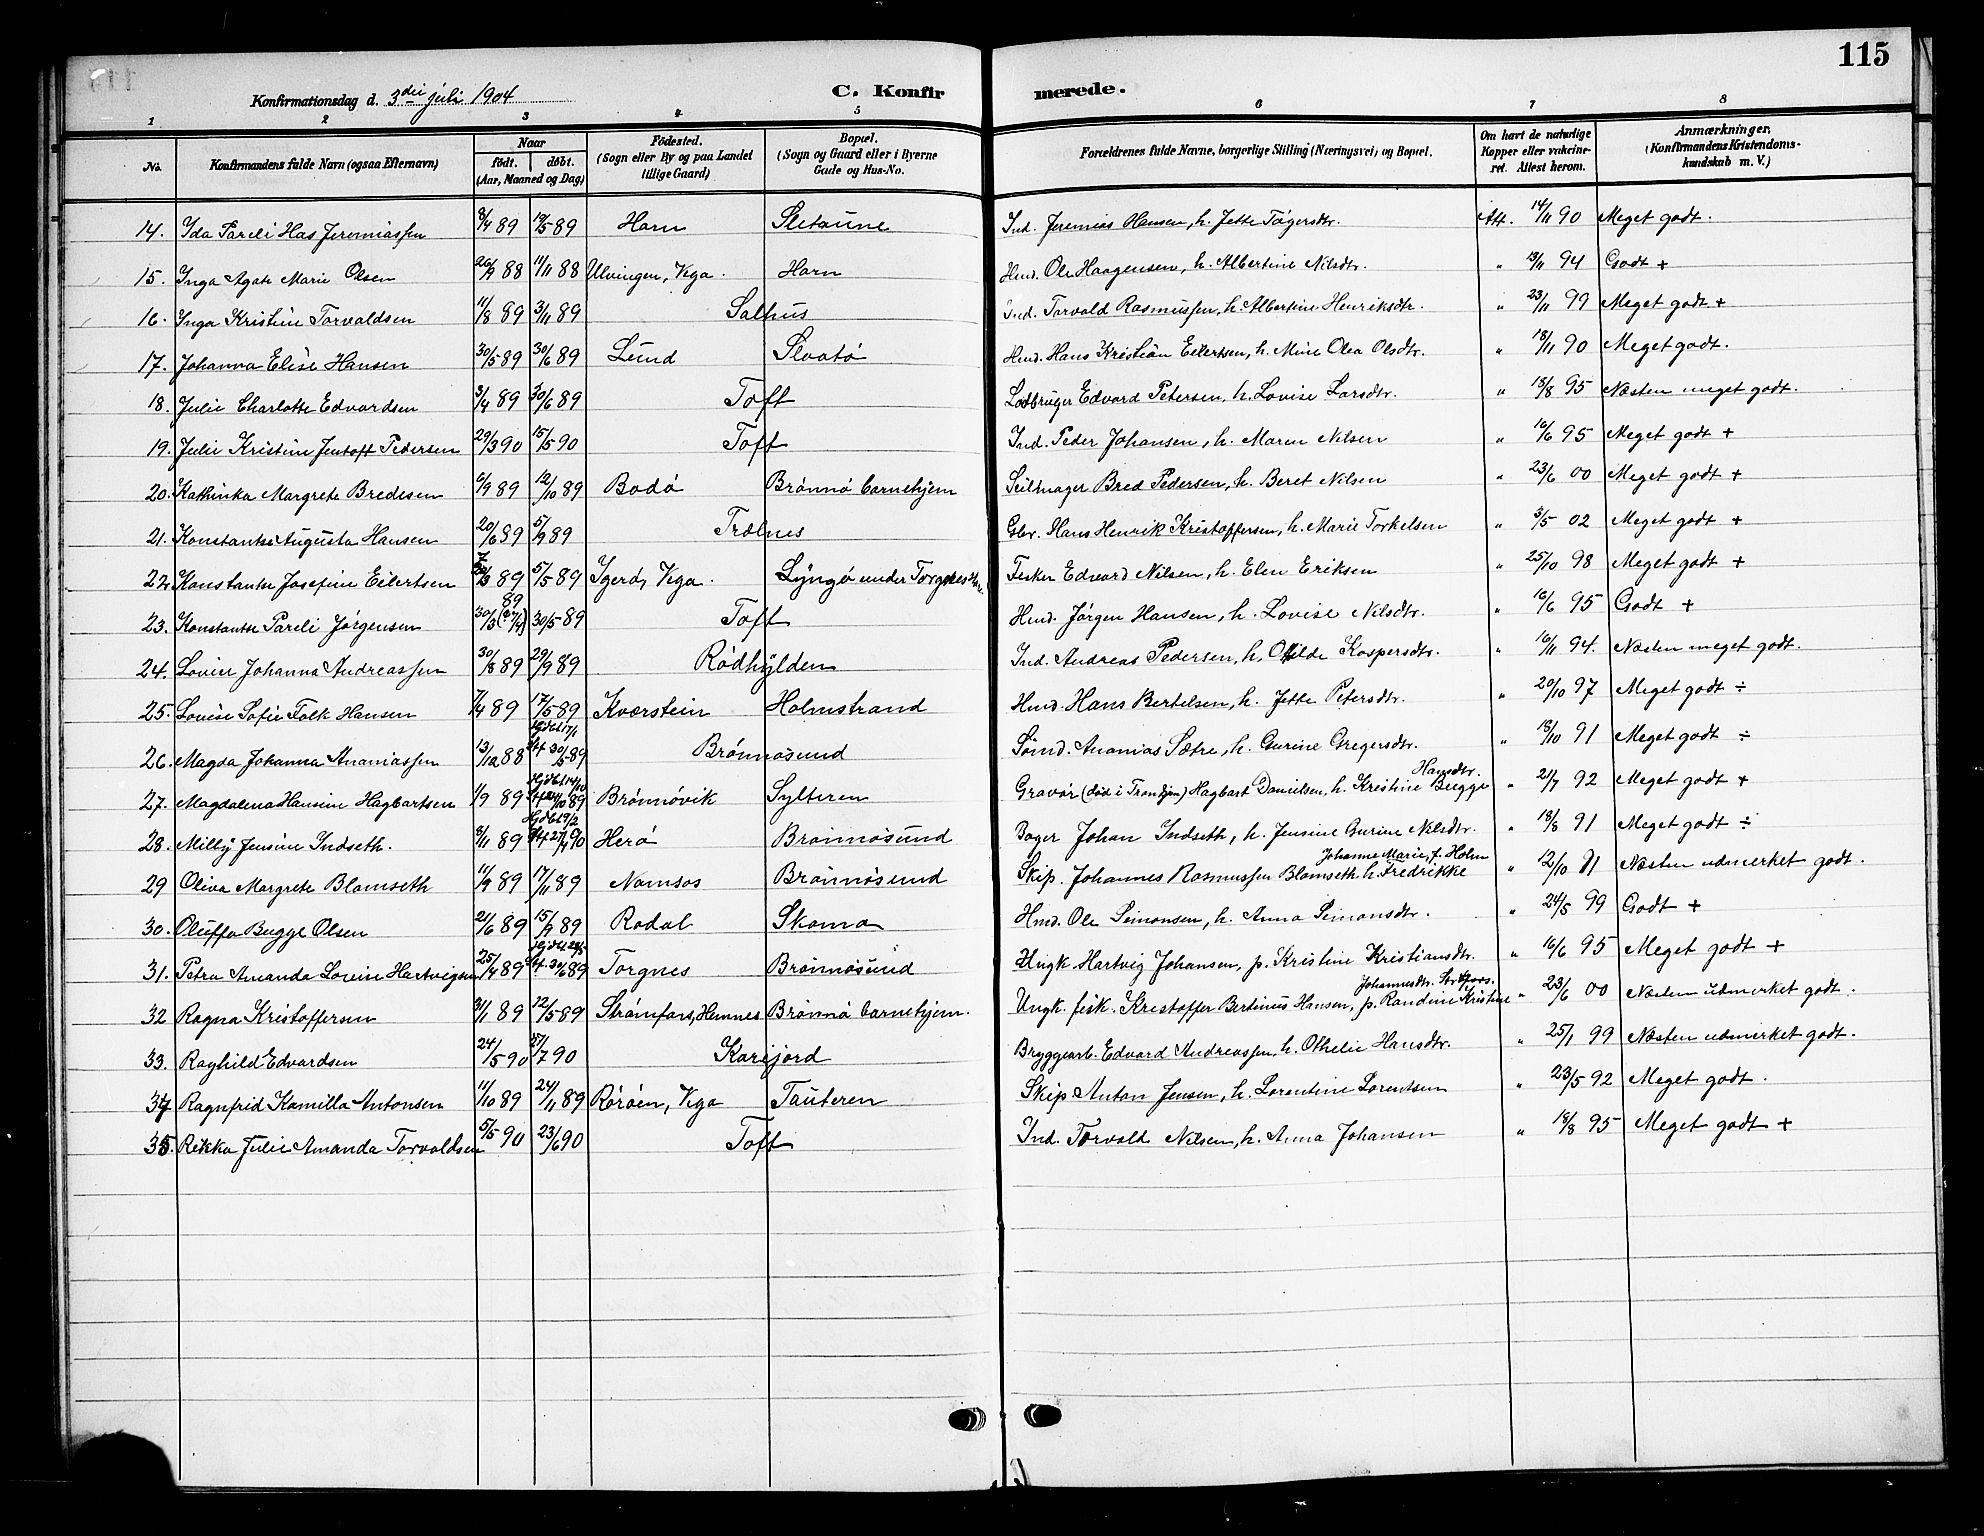 115
Konfirmationsdag d. 3die juli 1904
C. Konfirmerede.
1 2 3 4 5 6 7 8
No. Konfirmandens fulde Navn (ogsaa Efternavn) Naar født. døbt. (Aar, Maaned og Dag) Fødested. (Sogn eller By og paa Landet tillige Gaard) Bopæl. (Sogn og Gaard eller i Byerne Gade og Hus-No. Forældrenes fulde Navne, borgerlige Stilling (Næringsvei) og Bopæl. Om havt de naturlige Kopper eller vakcineret. Attest herom. Anmærkninger. (Konfirmandens Kristendomskundskab m. V.)
14. Ida Pareli Has Jeremiassen 8/4 89 19/5 89 Horn Sletaune Ind. Jeremias Hansen, h. Jette Tøgersdtr. Att. 14/11 90 Meget godt.
15. Inga Agate Marie Olsen 26/9 88 11/11 88 Ulvingen, Vega. Horn Hmd. Ole Haagensen, h. Albertine Nilsdtr. " 13/11 94 Godt +
16. Inga Kristine Torvaldsen 11/8 89 3/11 89 Salhus Ind. Torvald Rasmussen, h. Albertine Henriksdtr. " 23/11 99 Meget godt +
17. Johanna Elise Hansen 30/5 89 30/6 89 Lund Sloatø Hmd. Hans Kristian Eilertsen, h. Mine Olea Olsdtr. " 18/11 90 Meget godt.
18. Julie Charlotte Edvardsen 3/4 89 30/6 89 Toft Ledbruger Edvard Petersen, h. Lovise Larsdtr. " 18/8 95 Næsten meget godt.
19. Julie Kristine Jentoft Pedersen 29/3 90 15/5 90 Toft Ind. Peder Johansen, h. Maren Nilsen " 16/6 95 Meget godt +
20. Kathinka Margrete Bredesen 6/9 89 12/10 89 Bodø Brønnø barnehjem Seilmager Bred Pedersen, h. Beret Nilsen " 23/6 00 Meget godt +
21. Konstanse Augusta Hansen 20/6 89 5/9 89 Trælnes Gbr. Hans Henrik Kristoffersen, h. Marie Torkelsen " 3/5 02 Meget godt +
22. Konstanse Josefine Eilertsen 89 5/5 89 Ygerø, Vega. Lyngø under Torgnes Fisker Edvard Nilsen, h. Elen Eriksen " 25/10 98 Meget godt +
23. Konstanse Pareli Jørgensen 89 30/3 30/5 89 Toft Hmd. Jørgen Hansen, h. Lovise Nilsdtr. " 16/6 95 Godt +
24. Lovise Johanna Andreassen 30/8 89 29/9 89 Rødhylden Ind. Andreas Pedersen, h. Otilde Kaspersdtr. " 16/11 94. Næsten meget godt.
25. Lovise Sofie Falk Hansen 7/4 89 17/5 89 Kværstein Holmstrand Hmd. Hans Bertelsen, h. Jette Petersdtr. " 20/10 97 Meget godt ÷
26. Magda Johanna Ananiassen 13/12 88 Hjdbt 17/1 stf. 30/5 89 Brønnøsund Sømd. Ananias Sætre, h. Gurine Gregersdtr. " 18/10 91 Meget godt ÷
27. Magdalena Hansine Hagbartsen 1/9 89 Hjdbt 14/10 stf. /10 89 Brønnøvik Sylteren Gravør (død i Trondhjem) Hagbart Danielsen, h. Kristine Hansdtr. Bugge " 21/7 92 Meget godt +
28. Milly Jensine Indseth. 8/11 89 Hjdbt 9/2 stf 27/4 90 Herø Brønnøsund Bager Johan Indseth, h. Jensine Gurine Nilsdtr. " 18/8 91 Meget godt ÷
29 Oliva Margrete Blomseth 11/9 89 17/11 89 Namsos Brønnøsund Skip. Johannes Rasmussen Blomseth h. Fredrikke Johanne Marie, f. Holm " 12/10 91 Næsten udmerket godt.
30. Oluffa Bugge Olsen 21/6 89 15/9 89 Rodal Skomo Hmd. Ole Simonsen, h. Anna Simonsdtr. " 24/5 99 Godt +
31. Petra Amanda Lovise Hartvigsen 25/4 89 stf. 30/6 89 Torgnes Brønnøsund Ungk. Hartvig Johansen, p. Kristine Kristiansdtr. " 16/6 95 Meget godt +
32 Ragna Kristoffersen 31/1 89 12/5 89 Strømfors, Hemnes Brønnø barnehjem. Ungk. fisk. Kristoffer Bertinius Hansen, p. Randine Kristine Johannesdtr. Strfors. " 23/6 00 Næsten udmerket godt.
33. Raghild Edvardsen 24/5 90 27/7 90 Karijord Bryggearb. Edvard Andreassen, h. Othelie Hansdtr. " 25/1 99 Næsten udmerket godt.
34 Ragnfrid Kamilla Antonsen 11/10 89 24/11 89 Rørøen, Vega Tauteren Skip. Anton Jensen, h. Lorentine Lorentsen " 23/5 92 Meget godt.
35. Rikka Julie Amanda Torvaldsen 5/5 90 23/6 90 Toft Ind. Torvald Nilsen, h. Anna Johansen " 18/8 95 Meget godt +